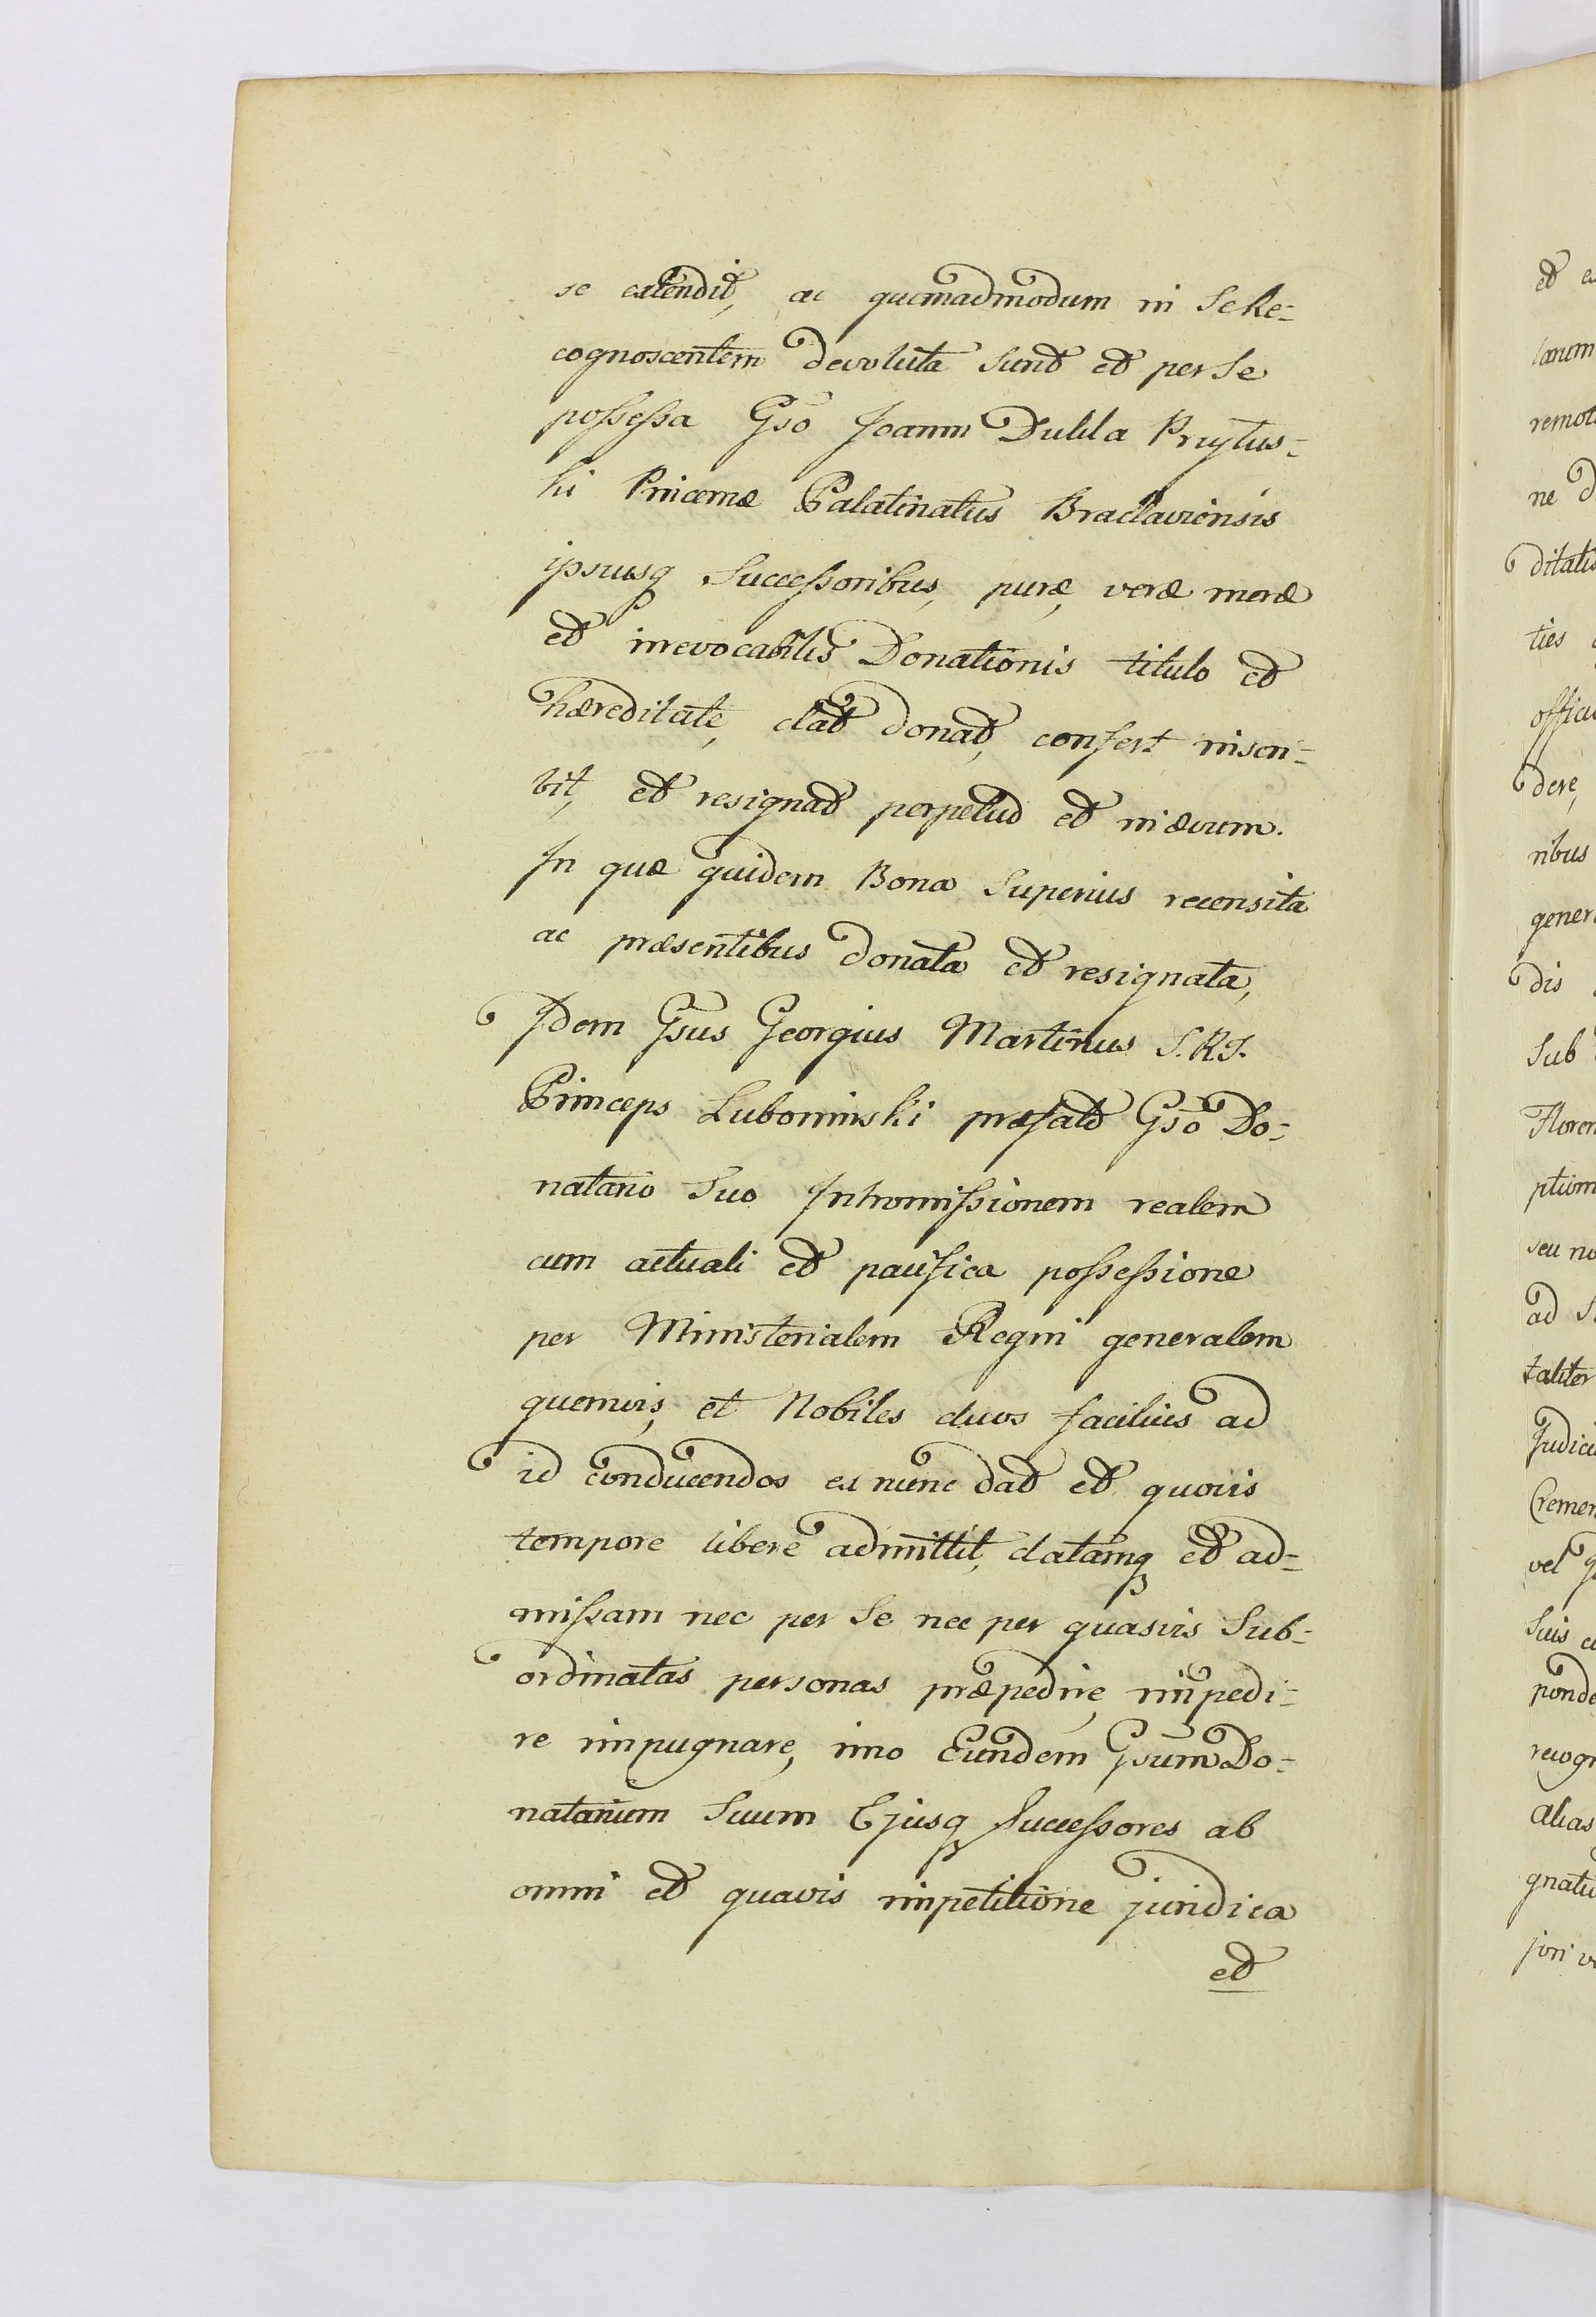 se extendit, ac quemadmodum in Se Re=
cognoscentem devoluta sunt et per Se
possessa Gso Joanni Dulila Przytus=
ki Pincernæ Palatinatus Braclaviensis
ipsiusq Successoribus, puræ, veræ meræ
et irrevocabilis Donationis titulo et
hæreditate, dat donat, confert inscri=
bit, et resignat perpetuo et in ævum.
In quæ quidem Bona Superius recensita
ac præsentibus donata et resignata,
Idem Gsus Georgius Martinus S.R.I.
Princeps Lubomirski præfato Gso Do=
natario Suo Intromissionem realem
cum actuali et pacifica possessione
per Ministerialem Regni generalem
quemvis, et Nobiles duos facilius ad
id conducendos ex nunc dat et quovis
tempore libere admittit, datamq et ad=
missam nec per Se nec per quasvis Sub=
ordinatas personas præpedire, impedi=
re impugnare, imo Eundem Gsum Do=
natarium Suum Ejusq Successores ab
omni et quavis impetitione juridica
et
et
larum
ne
ditatis
ties
dere,
ribus
dis
Sub
seu
ad
taliter
vel
Suis
alias
jori